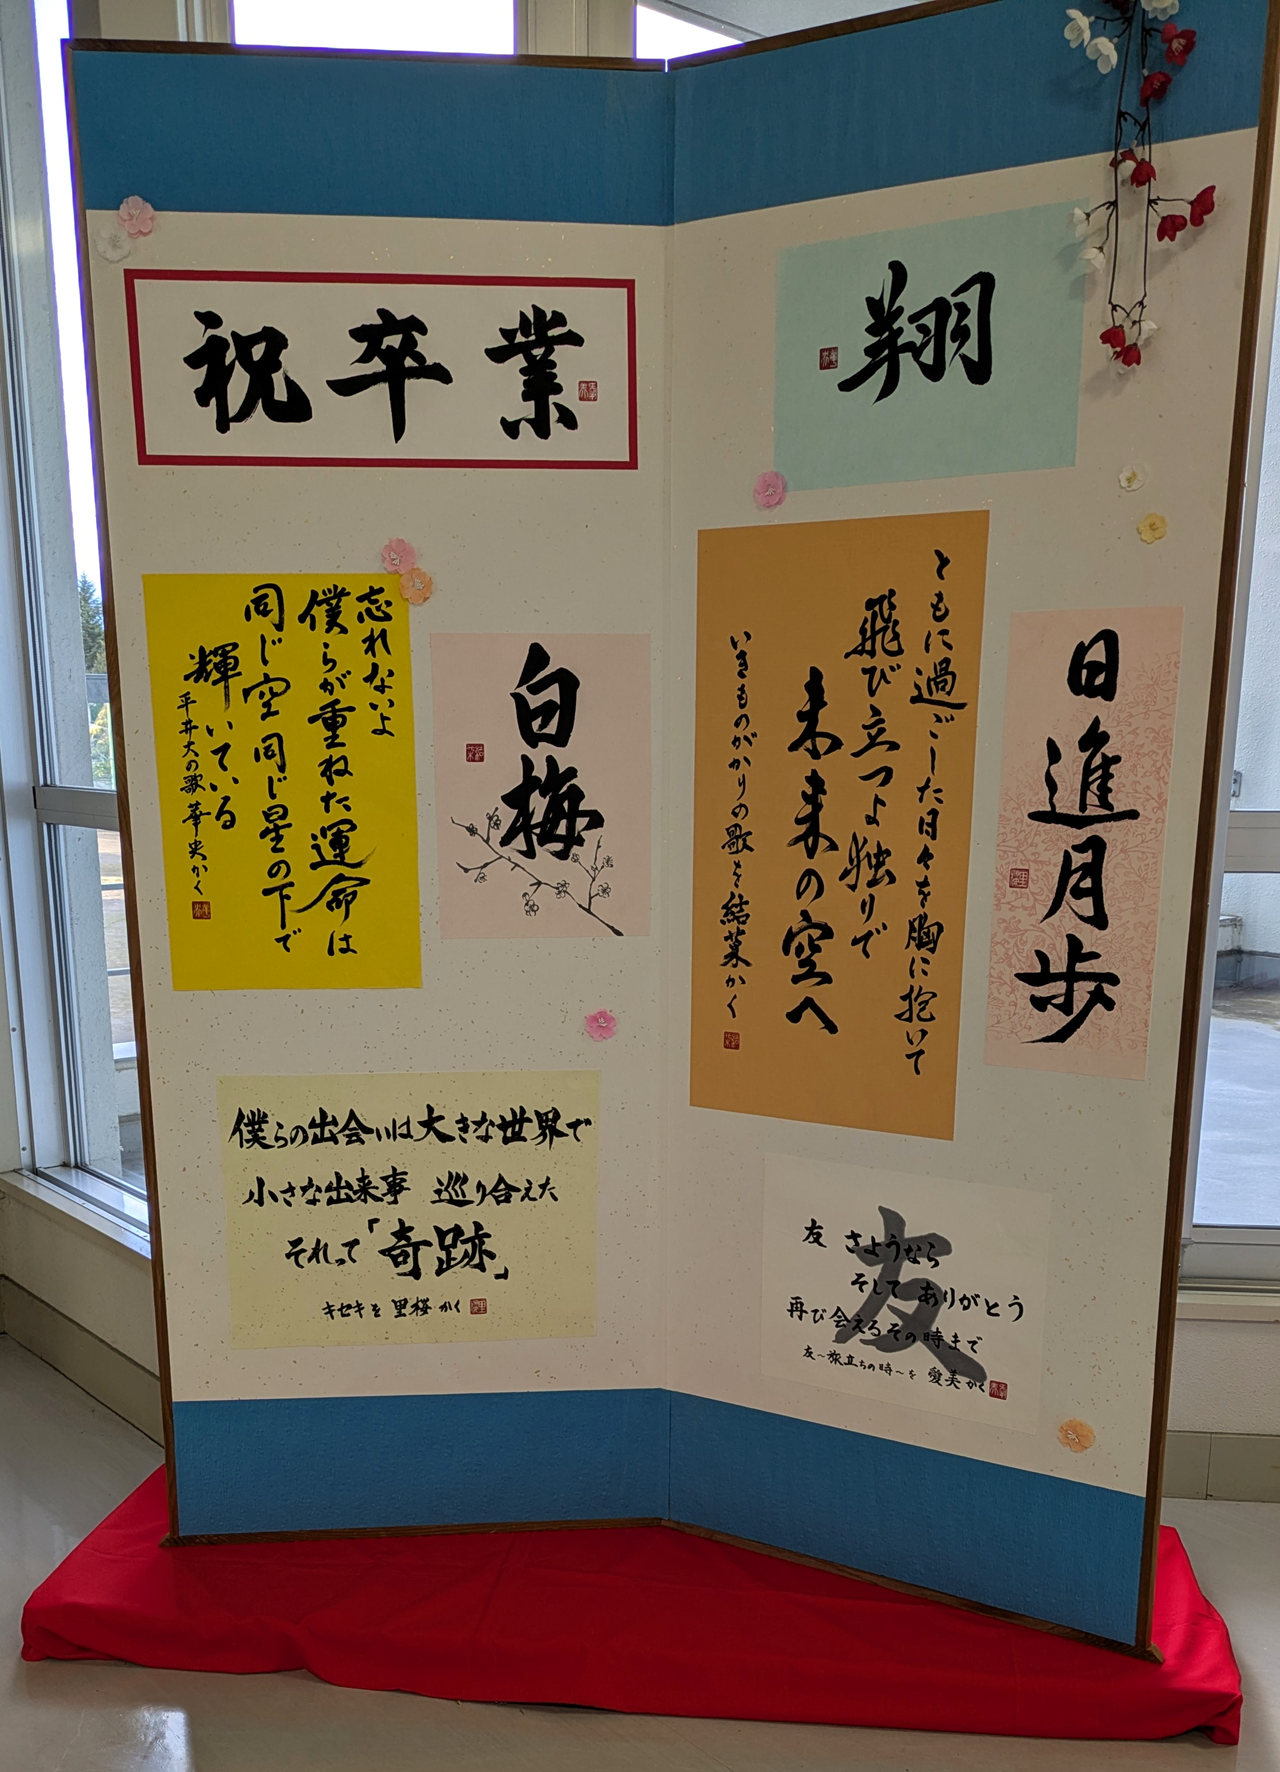 祝卒業
忘れないよ
僕らが重ねた運命は
同じ空同じ星の下で
輝いている
平井大の歌 華央かく
白梅
僕らの出会いは大きな世界で
小さな出来事 巡り合えた
それって「奇跡」
キセキを 里桜かく
翔
ともに過ごした日々を胸に抱いて
飛び立つよ独りで
未来の空へ
いきものがかりの歌を結菜かく
日進月歩
友
友 さようなら
そして ありがとう
再び会えるその時まで
友〜旅立ちの時〜を 愛美かく